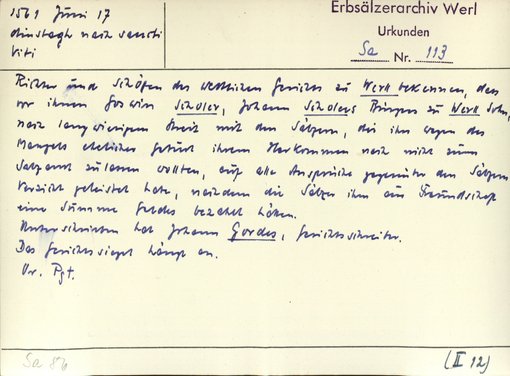 1561 Juni 17
dinstagh nach sancti
Viti
Erbsälzerarchiv Werl
Urkunden
Sa Nr. 113
Richter und Schöfen des weltlichen Gerichts zu Werl bekennen, das
vor ihnen Goswin Scholer, Johann Scholers Bürgers zu Werll Sohn,
nach langwierigem Streit mit den Sälzern, die ihn wegen des
Mangels ehelicher geburt ihrem Herkommen nach nicht zum
Salzamt zulassen wollten, auf alle Ansprüche gegenüber den Sälzern
Verzicht geleistet habe, nachdem die Sälzer ihm aus Freundschaft
eine Summe Geldes bezahlt hätten.
Unterschrieben hat Johann Gordes, Gerichtsschreiber.
Das Gerichtssiegel hängt an.
Ur. Pgt.
Sa 86
(II 12)